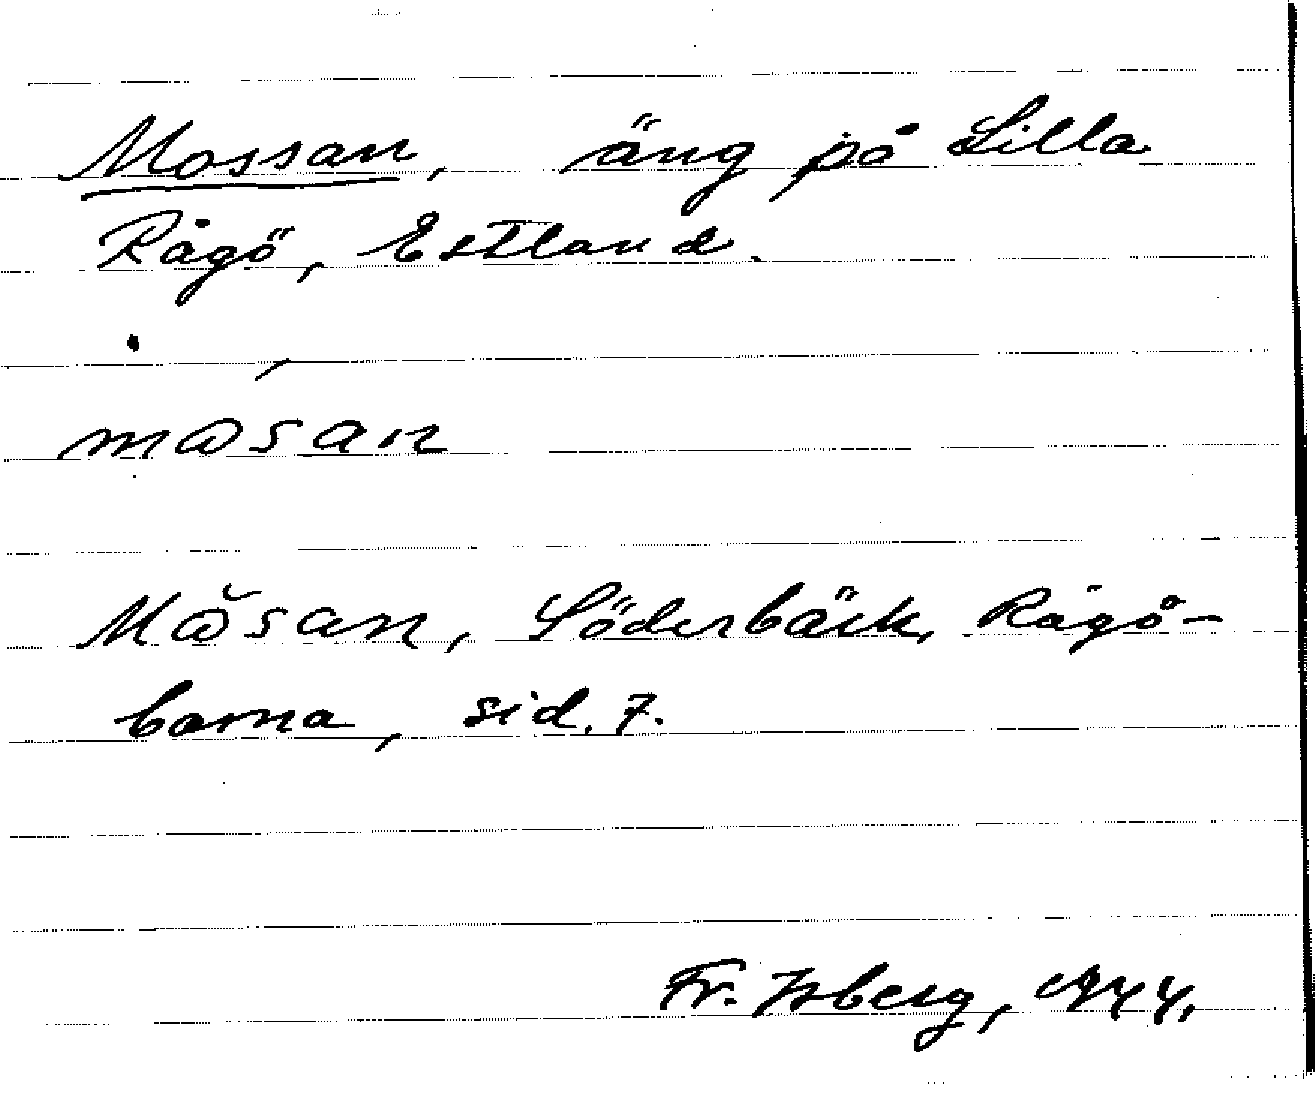 Mossan, äng på Lilla
Rågö, Estland.
måsan
Må̆san, Söderbäck, Rågö-
barna, sid. 7.
Fr. Isberg, 1944.